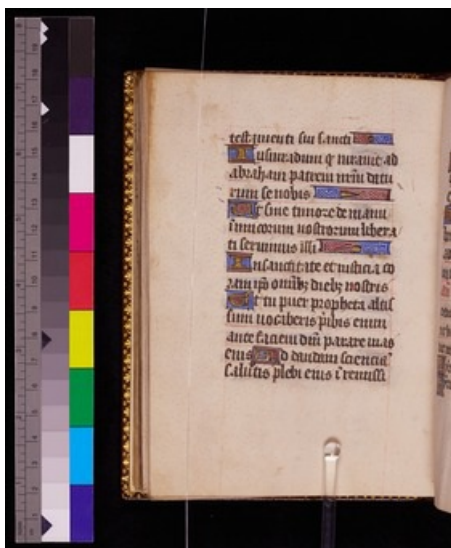 testamenti sui sancti
Iusiurandum q̄ iurauit ad
abraham patrem nr̄m datu
rum se nobis
Ut sine timore de manu
inimicorum nostrorum libera
ti seruiamus illi
In sanctitate et iusticia co
ram ip̄o omĩbꝫ diebꝫ nostris
Et tu puer propheta altis
simi uocaberis p̱ibis enim
ante faciem dn̄i parare uias
eius Ad dandam sciencia᷒
salutis plebi eius ĩ remissi